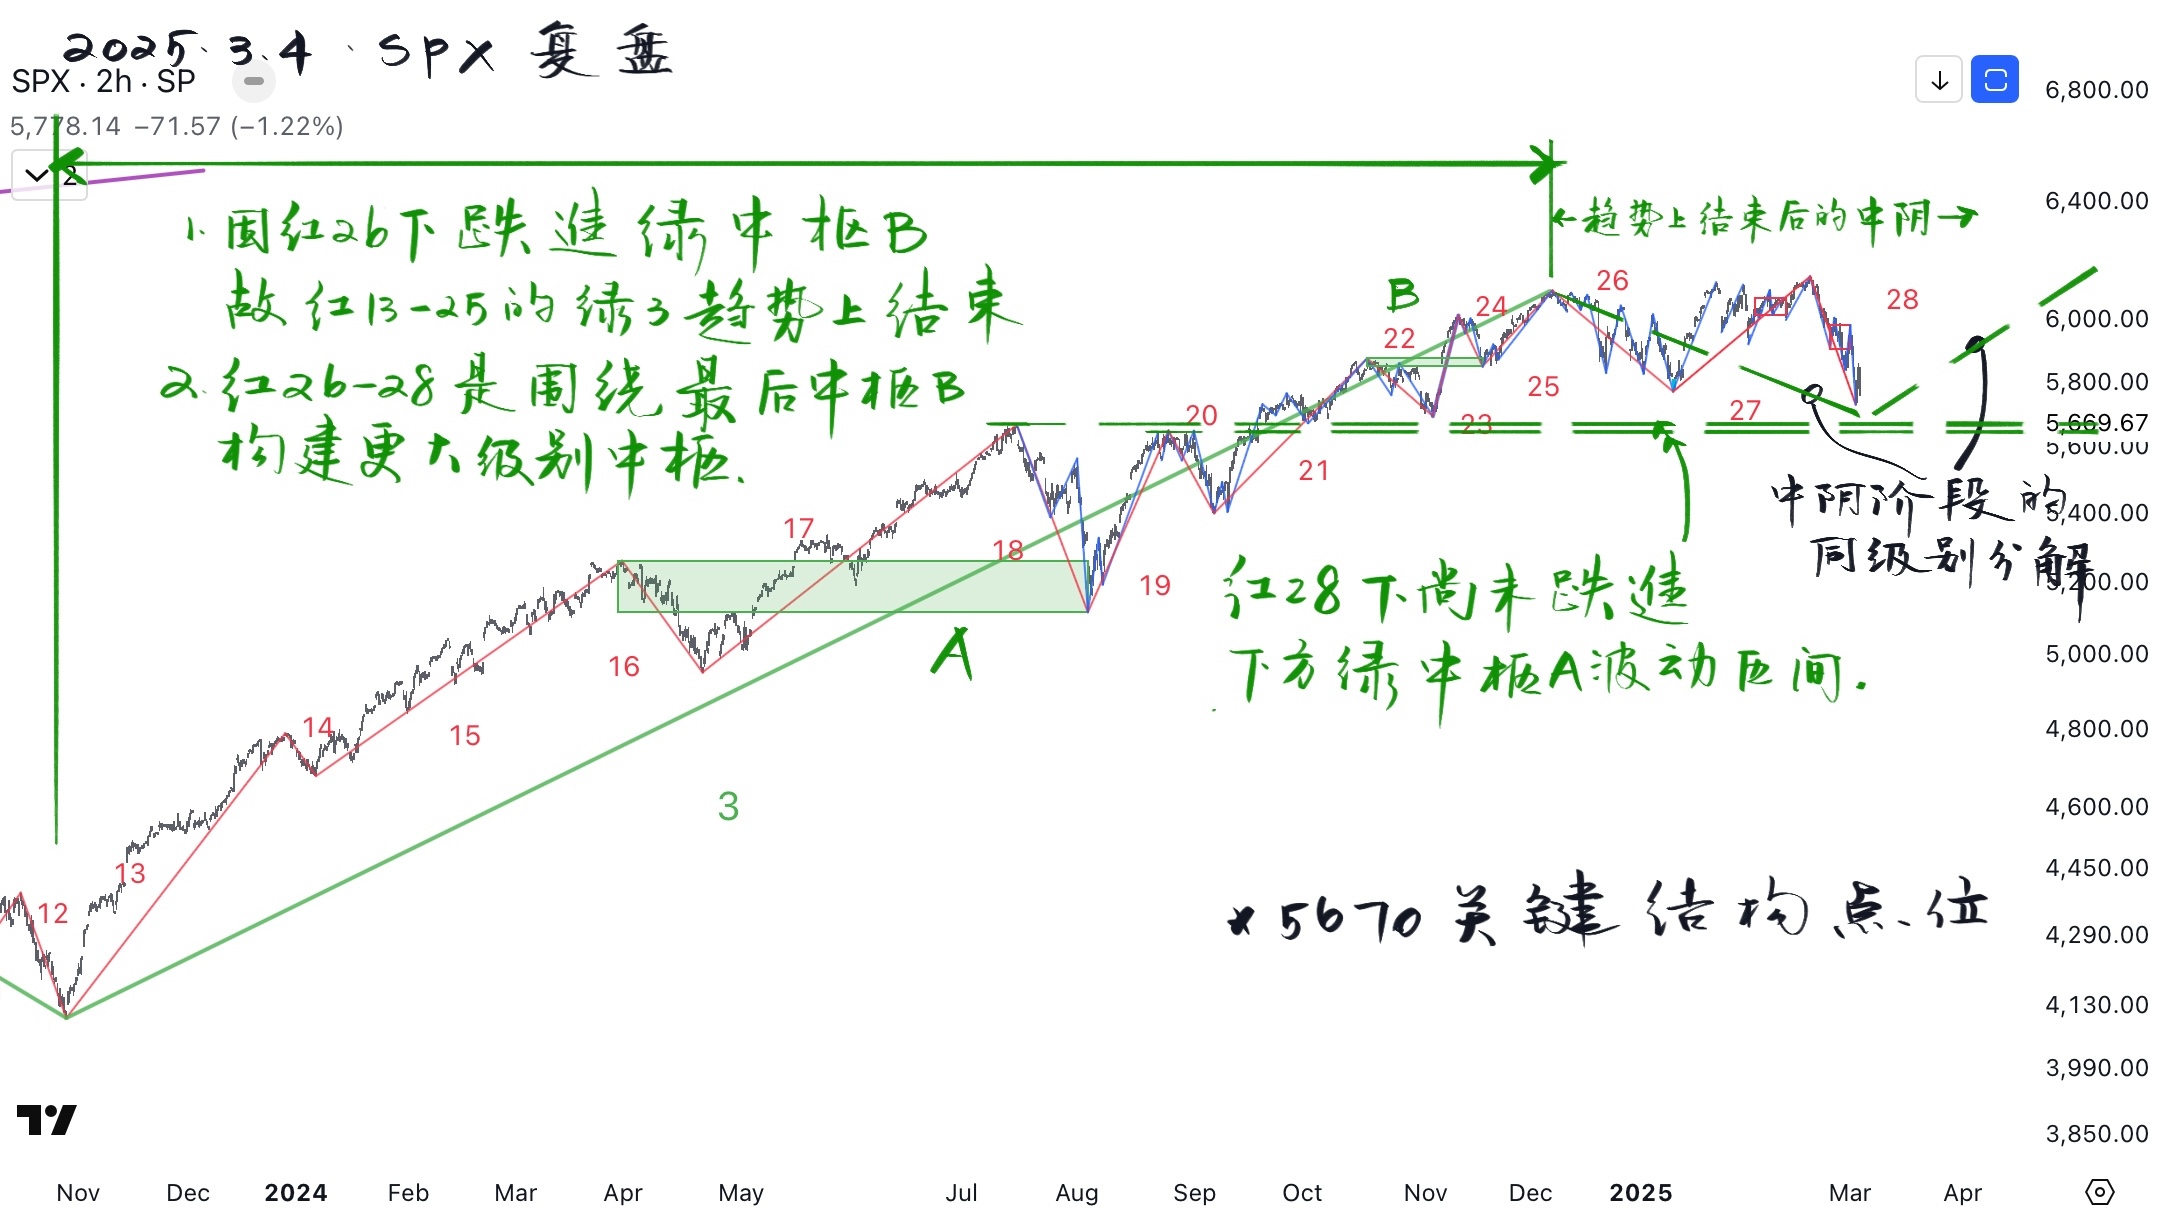 2025.3.4、SPX 复盘
SPX · 2h · SP
5,778.14 −71.57 (−1.22%)
2
1. 因红26下跌進绿中枢B
故红13-25的绿3趋势上结束
2. 红26-28是围绕最后中枢B
构建更大级别中枢.
←趋势上结束后的中阴→
B
A
3
12
13
14
15
16
17
18
19
20
21
22
23
24
25
26
27
28
中阴阶段的
同级别分解
红28下尚未跌進
下方绿中枢A波动区间.
*5670关键结构点位
6,800.00
6,400.00
6,000.00
5,800.00
5,669.67
5,600.00
5,400.00
5,200.00
5,000.00
4,800.00
4,600.00
4,450.00
4,290.00
4,130.00
3,990.00
3,850.00
Nov Dec 2024 Feb Mar Apr May Jul Aug Sep Oct Nov Dec 2025 Mar Apr